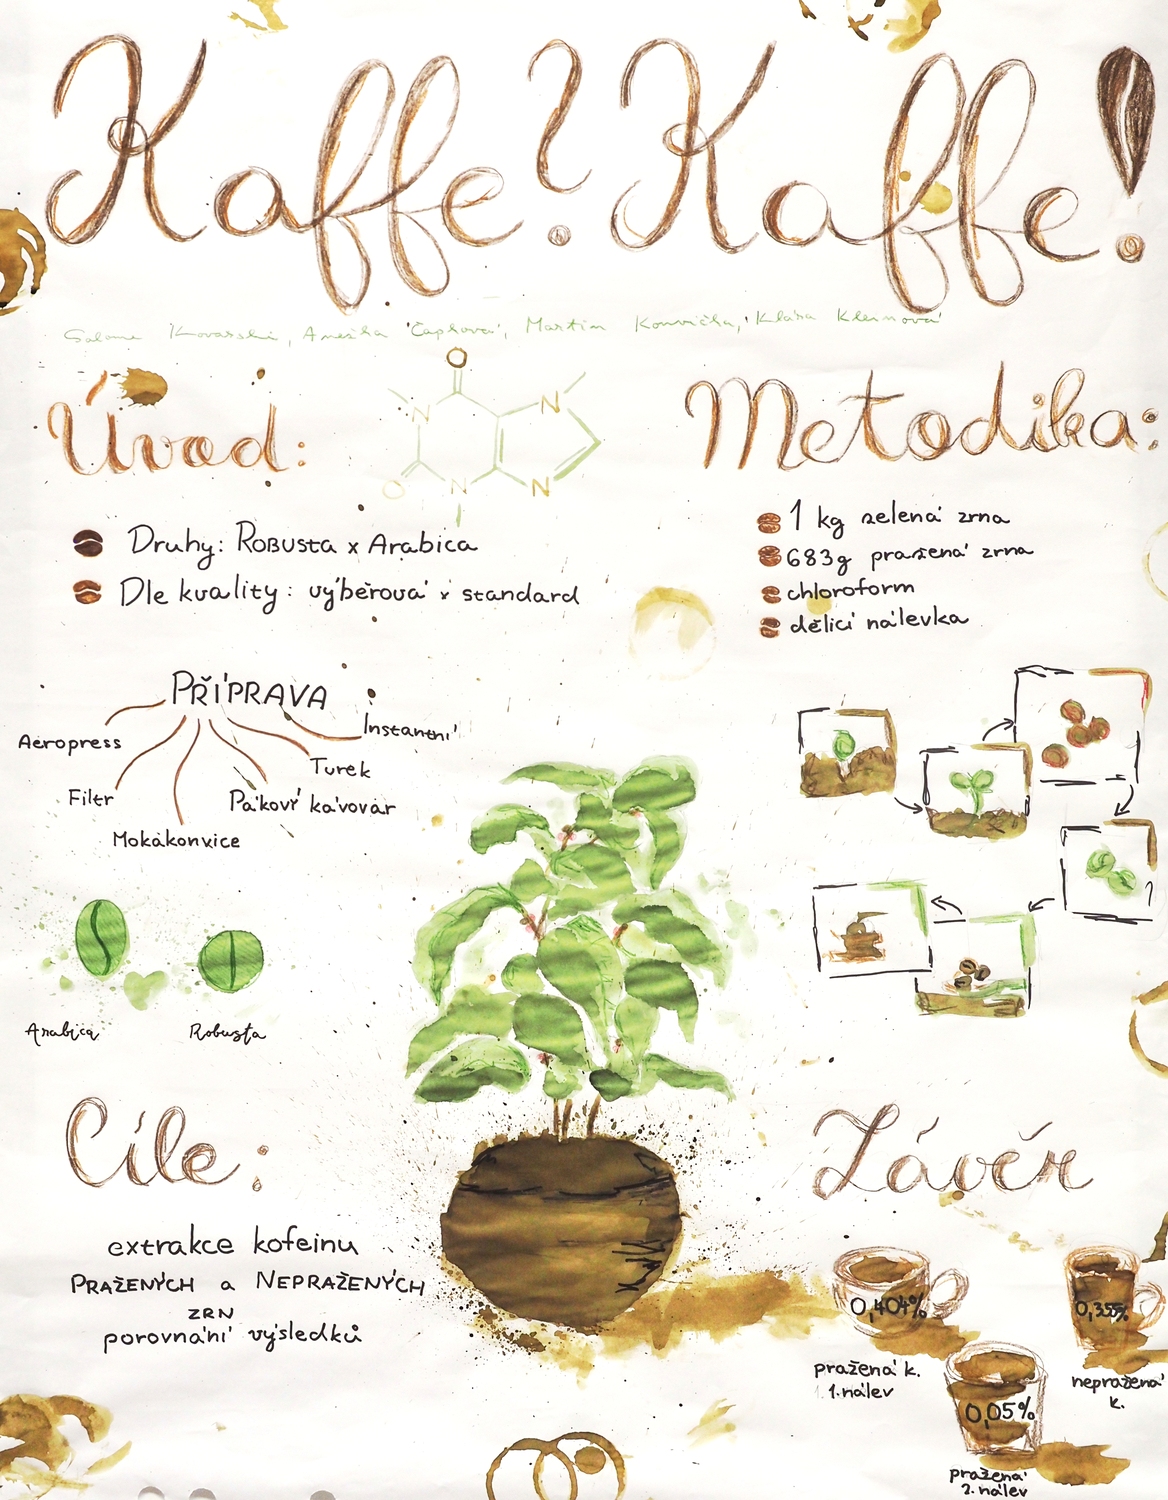 Kaffe? Kaffe!
Salome Kovarski, Anežka Čapková, Martin Konvička, Klára Kleinová
Úvod:
O
N
N
O
N
N
Druhy: Robusta x Arabica
Dle kvality: výběrová x standard
PŘÍPRAVA
Aeropress
Filtr
Mokákonvice
Pákový kávovar
Turek
Instantní
Arabica
Robusta
Metodika:
1 kg zelená zrna
683g pražená zrna
chloroform
dělicí nálevka
Cíle:
extrakce kofeinu
PRAŽENÝCH a NEPRAŽENÝCH
ZRN
porovnání výsledků
Závěr
0,404%
pražená k.
1. nálev
0,355%
nepražená
k.
0,05%
pražená
2. nálev